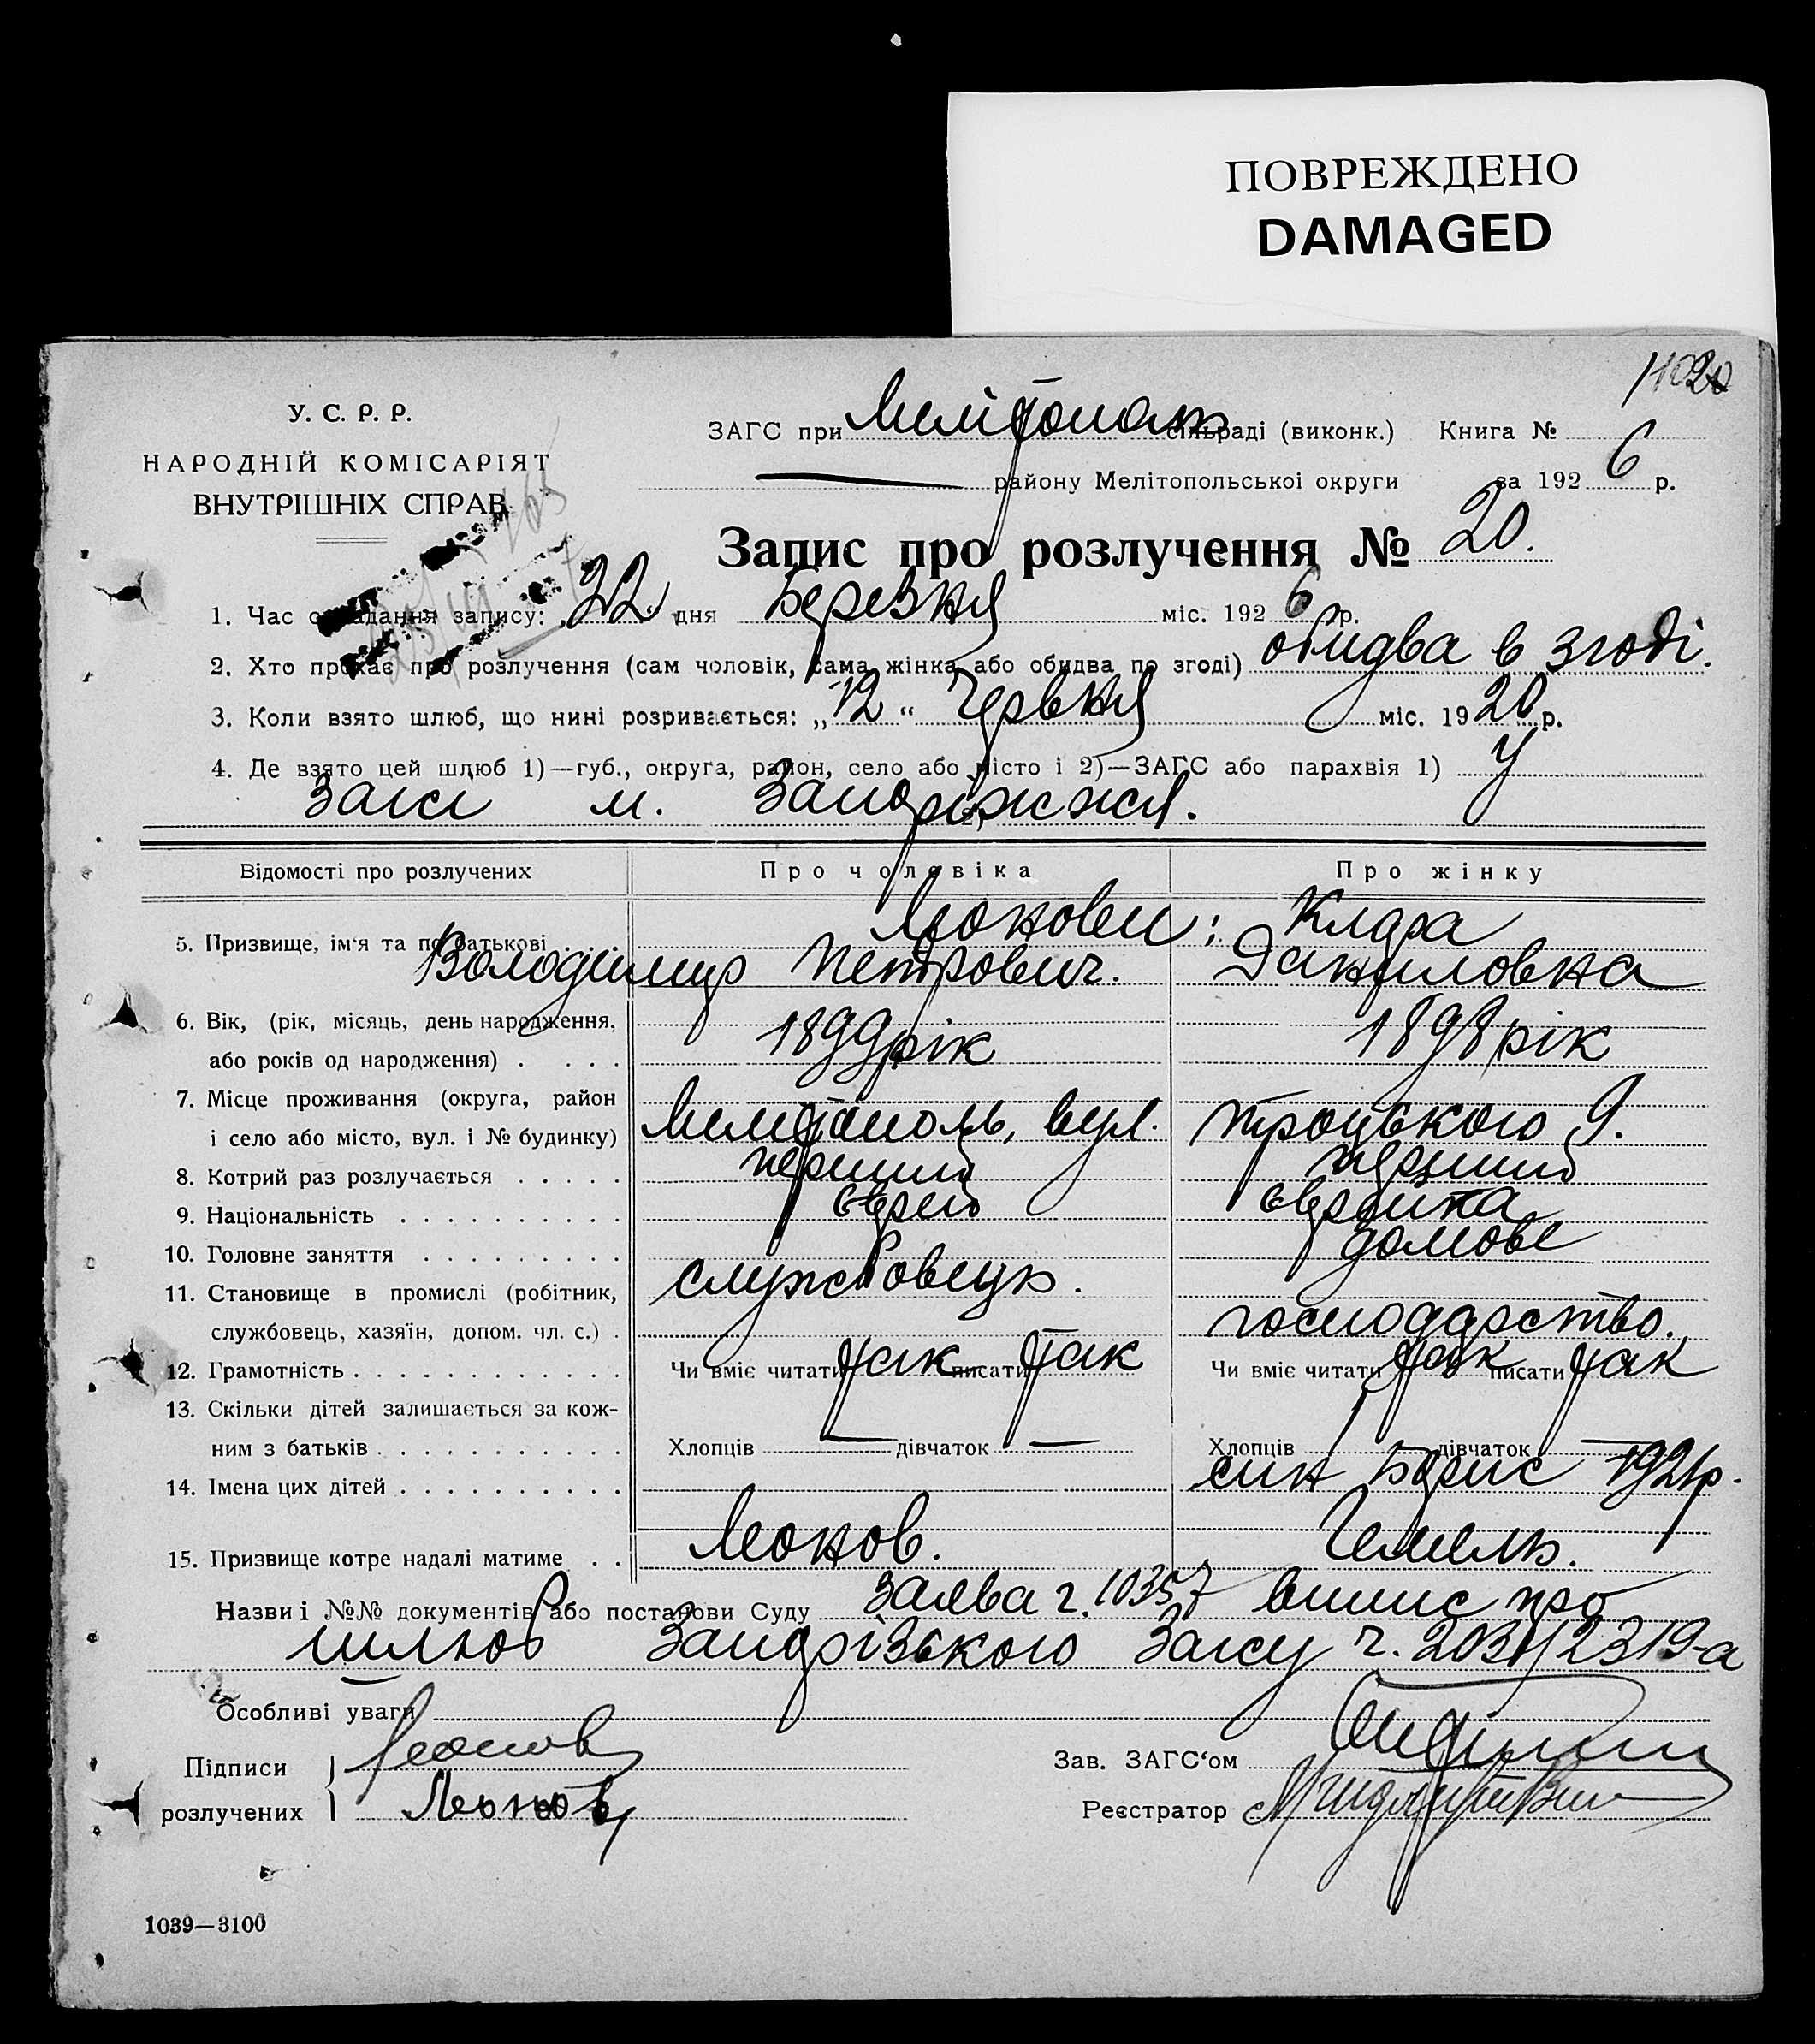 ПОВРЕЖДЕНО
DAMAGED
У. С. Р. Р.
НАРОДНІЙ КОМІСАРІЯТ
ВНУТРІШНІХ СПРАВ
ЗАГС при Мелітополь сільраді (виконк.) Книга №
— району Мелітопольської округи за 1926 р.
Запис про розлучення № 20.
1. Час складання запису: 22. дня Березня міс. 1926 р.
2. Хто прохає про розлучення (сам чоловік, сама жінка або обидва по згоді) обидва в згоді.
3. Коли взято шлюб, що нині розривається: „12“ Червня міс. 1920 р.
4. Де взято цей шлюб 1)—губ., округа, район, село або місто і 2)—ЗАГС або парахвія 1) У
Загсі м. Запоріжжя.
Відомості про розлучених Про чоловіка Про жінку
5. Призвище, ім'я та по батькові Леонови; Клара
Володимир Петрович. Даниловна
6. Вік, (рік, місяць, день народження, або років од народження) . . . . 1899 рік 1898 рік
7. Місце проживання (округа, район і село або місто, вул. і № будинку) Мелітополь, вул. Троцького 9.
8. Котрий раз розлучається . . . . . перший перший
9. Національність . . . . . . . . . . єврей єврейка
10. Головне заняття . . . . . . . . . домове
11. Становище в промислі (робітник, службовець. господарство.
службовець, хазяїн, допом. чл. с.) .
12. Грамотність . . . . . . . . . . . . Чи вміє читати так писати так Чи вміє читати так писати так
13. Скільки дітей залишається за кож-
ним з батьків . . . . . . . . . . . Хлопців — дівчаток — Хлопців 1 дівчаток —
14. Імена цих дітей . . . . . . . . . . син Борис 1921 р.
15. Призвище котре надалі матиме . . Леонов. Гемель.
Назви і №№ документів або постанови Суду заява ч. 10357 випис про
шлюб Запорізького Загсу ч. 2031/2319-а
Особливі уваги
Підписи розлучених Леонов Зав. ЗАГС'ом
Леонов Реєстратор
1039—3100